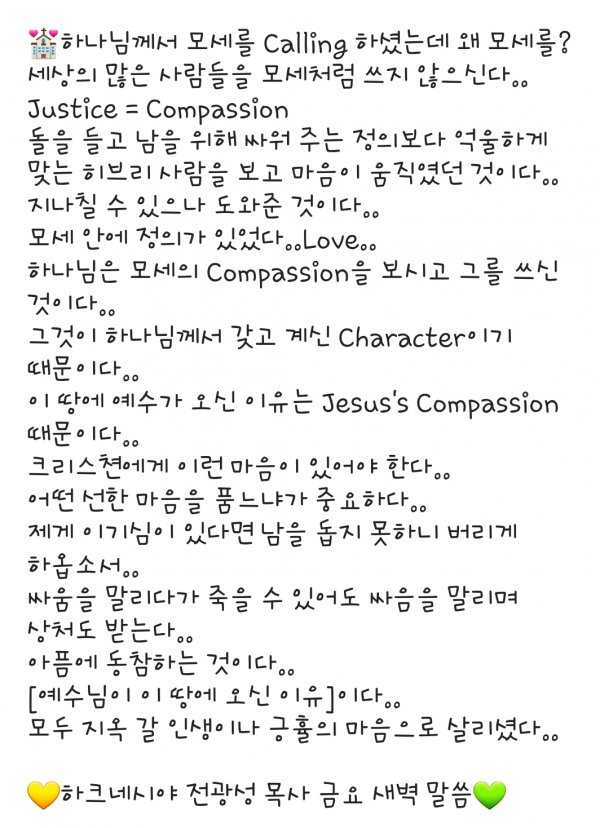 💒하나님께서 모세를 Calling 하셨는데 왜 모세를?
세상의 많은 사람들을 모세처럼 쓰지 않으신다。。
Justice = Compassion
돌을 들고 남을 위해 싸워 주는 정의보다 억울하게
맞는 히브리 사람을 보고 마음이 움직였던 것이다。。
지나칠 수 있으나 도와준 것이다。。
모세 안에 정의가 있었다。。Love。。
하나님은 모세의 Compassion을 보시고 그를 쓰신
것이다。。
그것이 하나님께서 갖고 계신 Character이기
때문이다。。
이 땅에 예수가 오신 이유는 Jesus's Compassion
때문이다。。
크리스천에게 이런 마음이 있어야 한다。。
어떤 선한 마음을 품느냐가 중요하다。。
제게 이기심이 있다면 남을 돕지 못하니 버리게
하옵소서。。
싸움을 말리다가 죽을 수 있어도 싸음을 말리며
상처도 받는다。。
아픔에 동참하는 것이다。。
[예수님이 이 땅에 오신 이유]이다。。
모두 지옥 갈 인생이나 긍휼의 마음으로 살리셨다。。
💛하크네시야 전광성 목사 금요 새벽 말씀💚